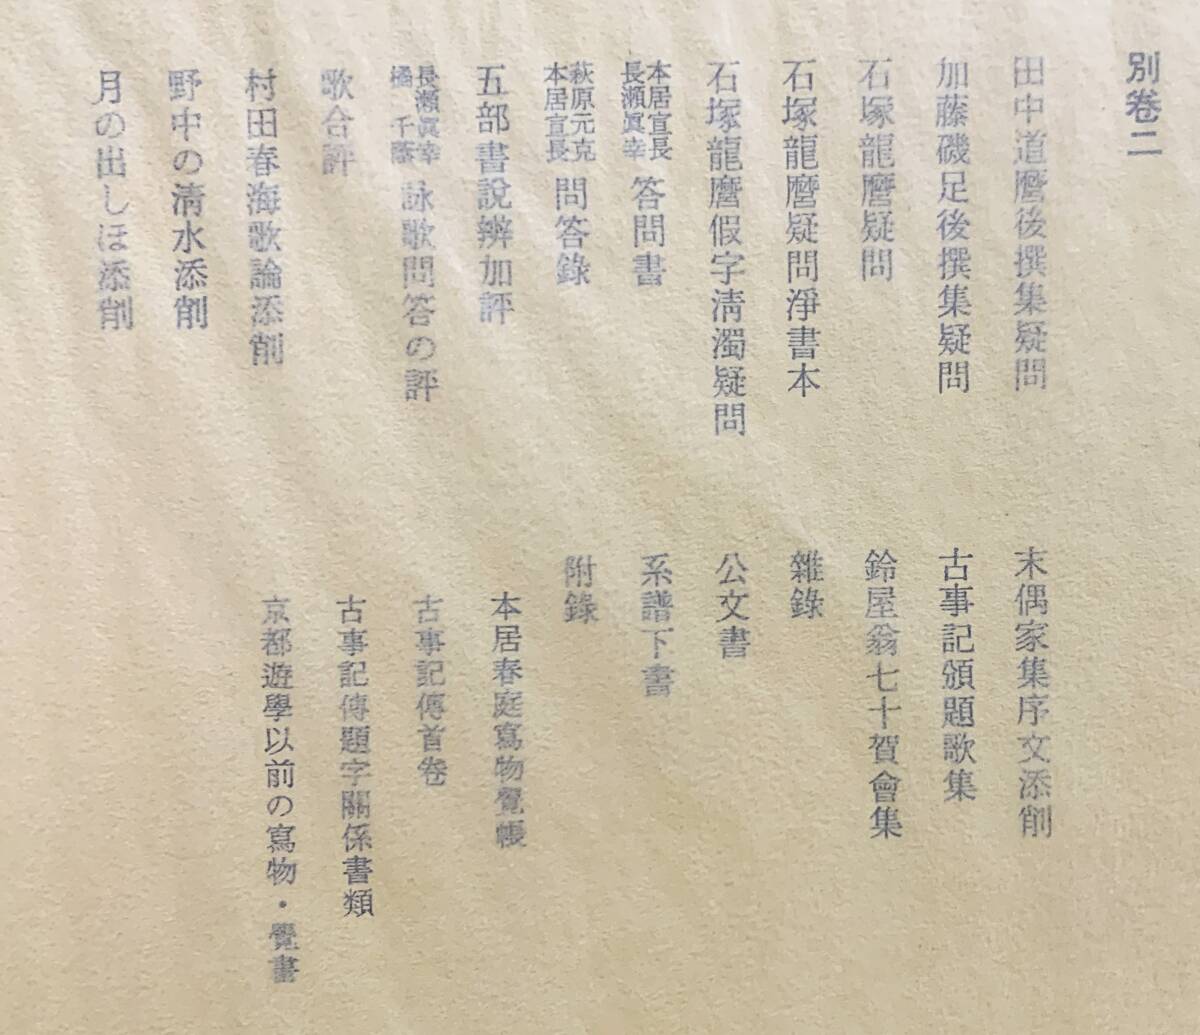 別卷二
田中道麿後撰集疑問
加藤磯足後撰集疑問
石塚龍麿疑問
石塚龍麿疑問淨書本
石塚龍麿假字淸濁疑問
本居宣長
長瀬眞幸
答問書
萩原元克
本居宣長
問答錄
五部書說辨加評
長瀬眞幸
橘千蔭
詠歌問答の評
歌合評
村田春海歌論添削
野中の淸水添削
月の出しほ添削
末偶家集序文添削
古事記頒題歌集
鈴屋翁七十賀會集
雜錄
公文書
系譜下書
附錄
本居春庭寫物覺帳
古事記傳首卷
古事記傳題字關係書類
京都遊學以前の寫物・覺書